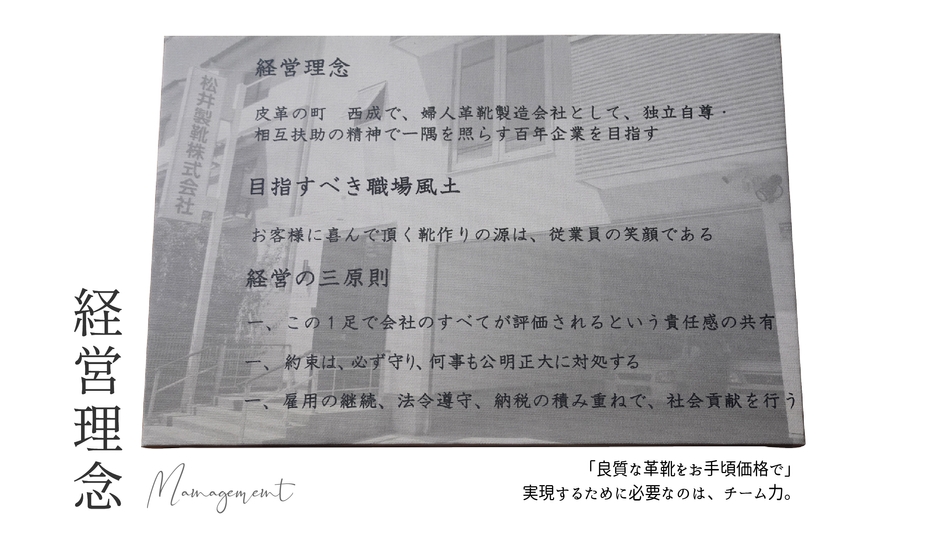 松井製靴株式会社
経営理念
皮革の町　西成で、婦人革靴製造会社として、独立自尊・
相互扶助の精神で一隅を照らす百年企業を目指す
目指すべき職場風土
お客様に喜んで頂く靴作りの源は、従業員の笑顔である
経営の三原則
一、この1足で会社のすべてが評価されるという責任感の共有
一、約束は、必ず守り、何事も公明正大に対処する
一、雇用の継続、法令遵守、納税の積み重ねで、社会貢献を行う
経営理念
Mamagement
「良質な革靴をお手頃価格で」
実現するために必要なのは、チーム力。